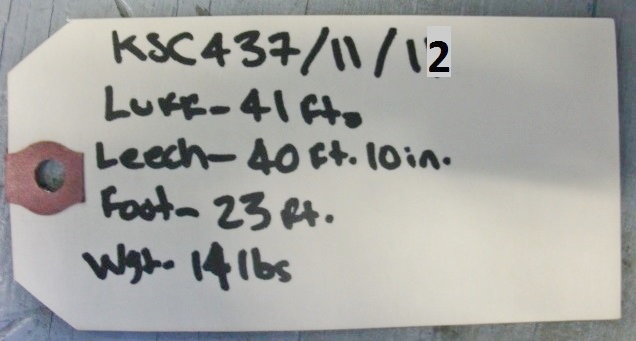 KSC437/11/12
Luff- 41 ft.
Leech- 40 ft. 10 in.
Foot- 23 ft.
Wgt- 14 lbs